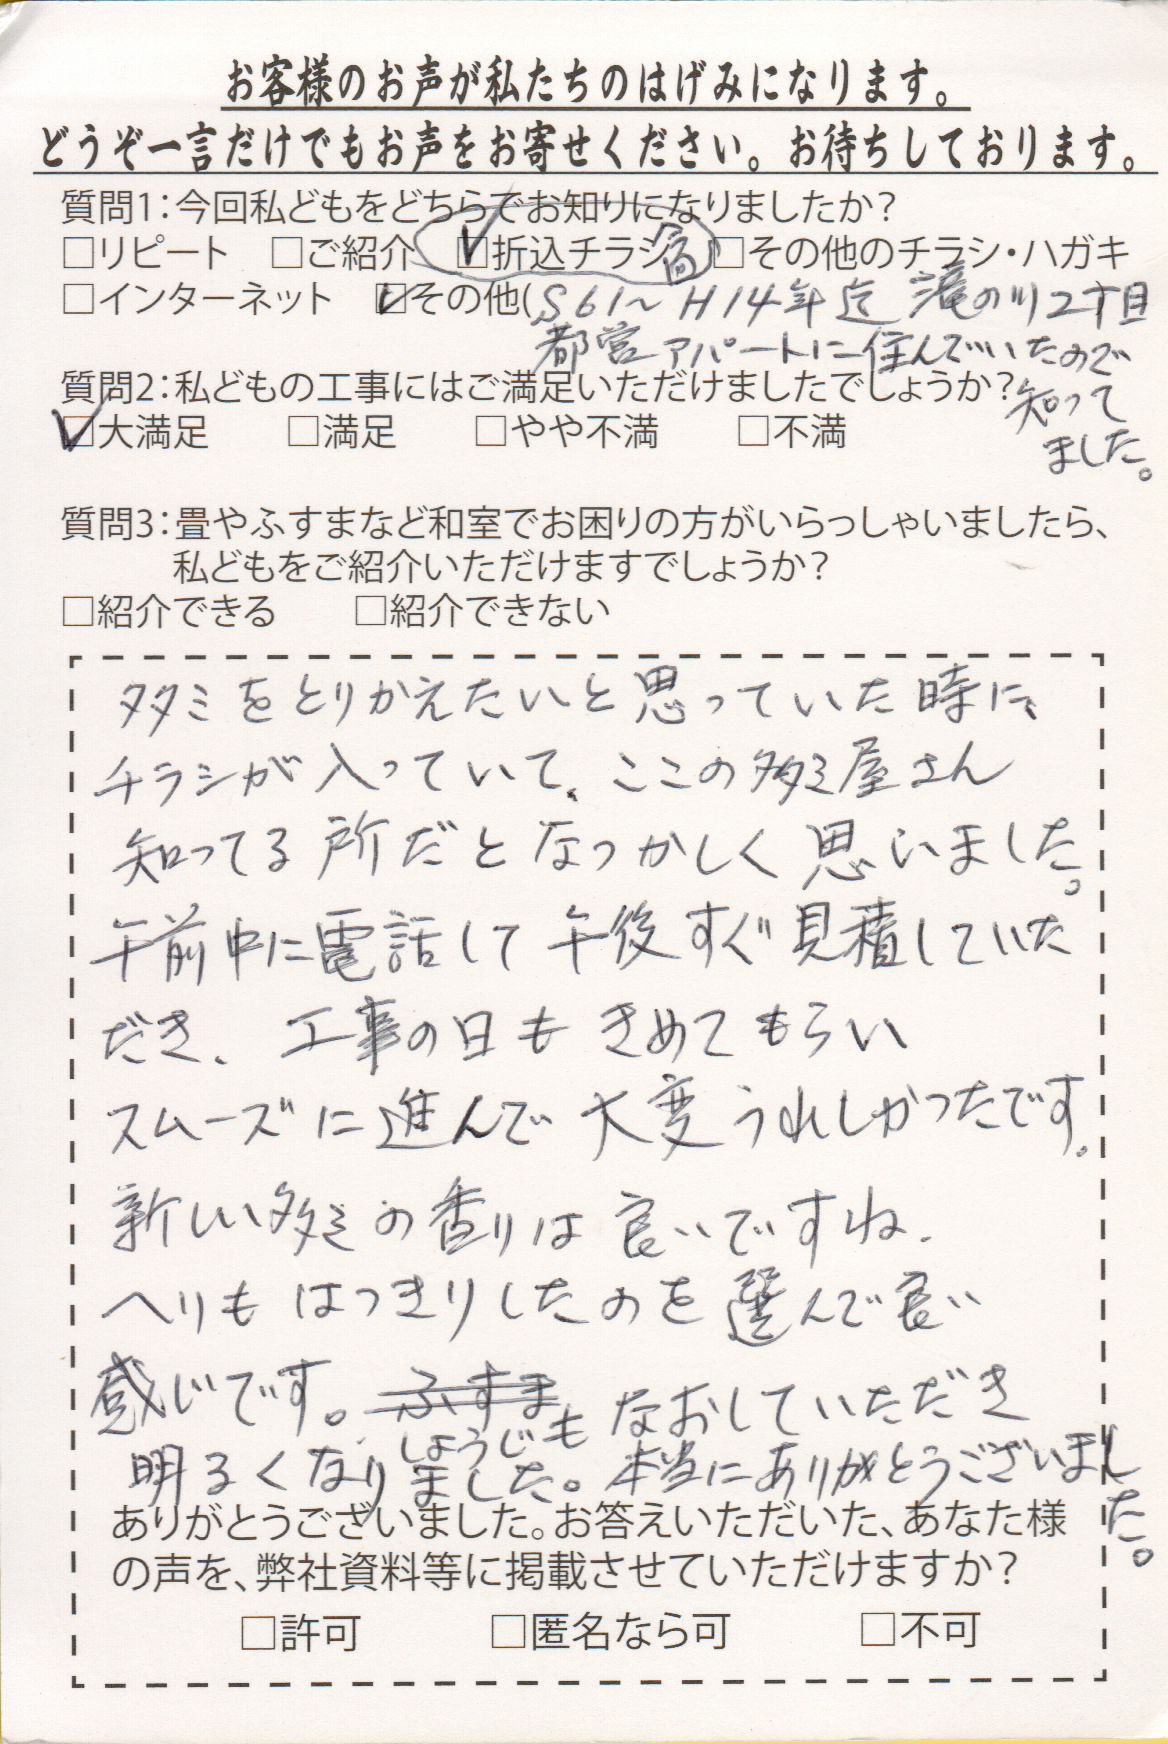 お客様のお声が私たちのはげみになります。
どうぞ一言だけでもお声をお寄せください。お待ちしております。
質問1:今回私どもをどちらでお知りになりましたか?
□リピート □ご紹介 ☑折込チラシ □その他のチラシ・ハガキ
□インターネット ☑その他(S61〜H14年迄 滝の川2丁目
都営アパートに住んでいたので
質問2:私どもの工事にはご満足いただけましたでしょうか?
知って
☑大満足 □満足 □やや不満 □不満
ました。
質問3:畳やふすまなど和室でお困りの方がいらっしゃいましたら、
私どもをご紹介いただけますでしょうか?
□紹介できる □紹介できない
タタミをとりかえたいと思っていた時に、
チラシが入っていて、ここの タタミ屋さん
知ってる所だとなつかしく思いました。
午前中に電話して午後すぐ見積していた
だき、工事の日もきめてもらい
スムーズに進んで大変うれしかったです。
新しいタタミの香りは良いですね。
へりもはっきりしたのを選んで良い
感じです。ふすま しょうじも なおしていただき
明るくなりました。本当にありがとうございました。
ありがとうございました。お答えいただいた、あなた様
の声を、弊社資料等に掲載させていただけますか?
□許可 □匿名なら可 □不可